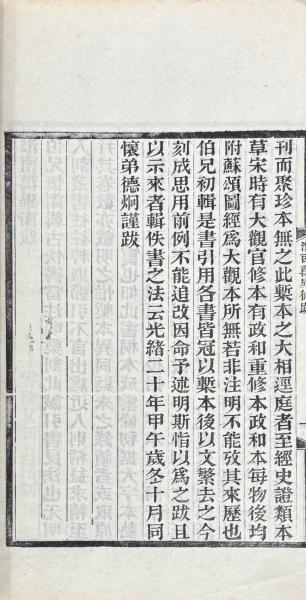 刊而聚珍本無之此槧本之大相逕庭者至經史證類本
草宋時有大觀官修本有政和重修本政和本每物後均
附蘇頌圖經為大觀本所無若非注明不能攷其來歷也
伯兄初輯是書引用各書皆冠以槧本後以文繁去之今
刻成思用前例不能追改因命予述明斯恉以為之跋且
以示來者輯佚書之法云光緒二十年甲午歲冬十月同
懷弟德炯謹跋